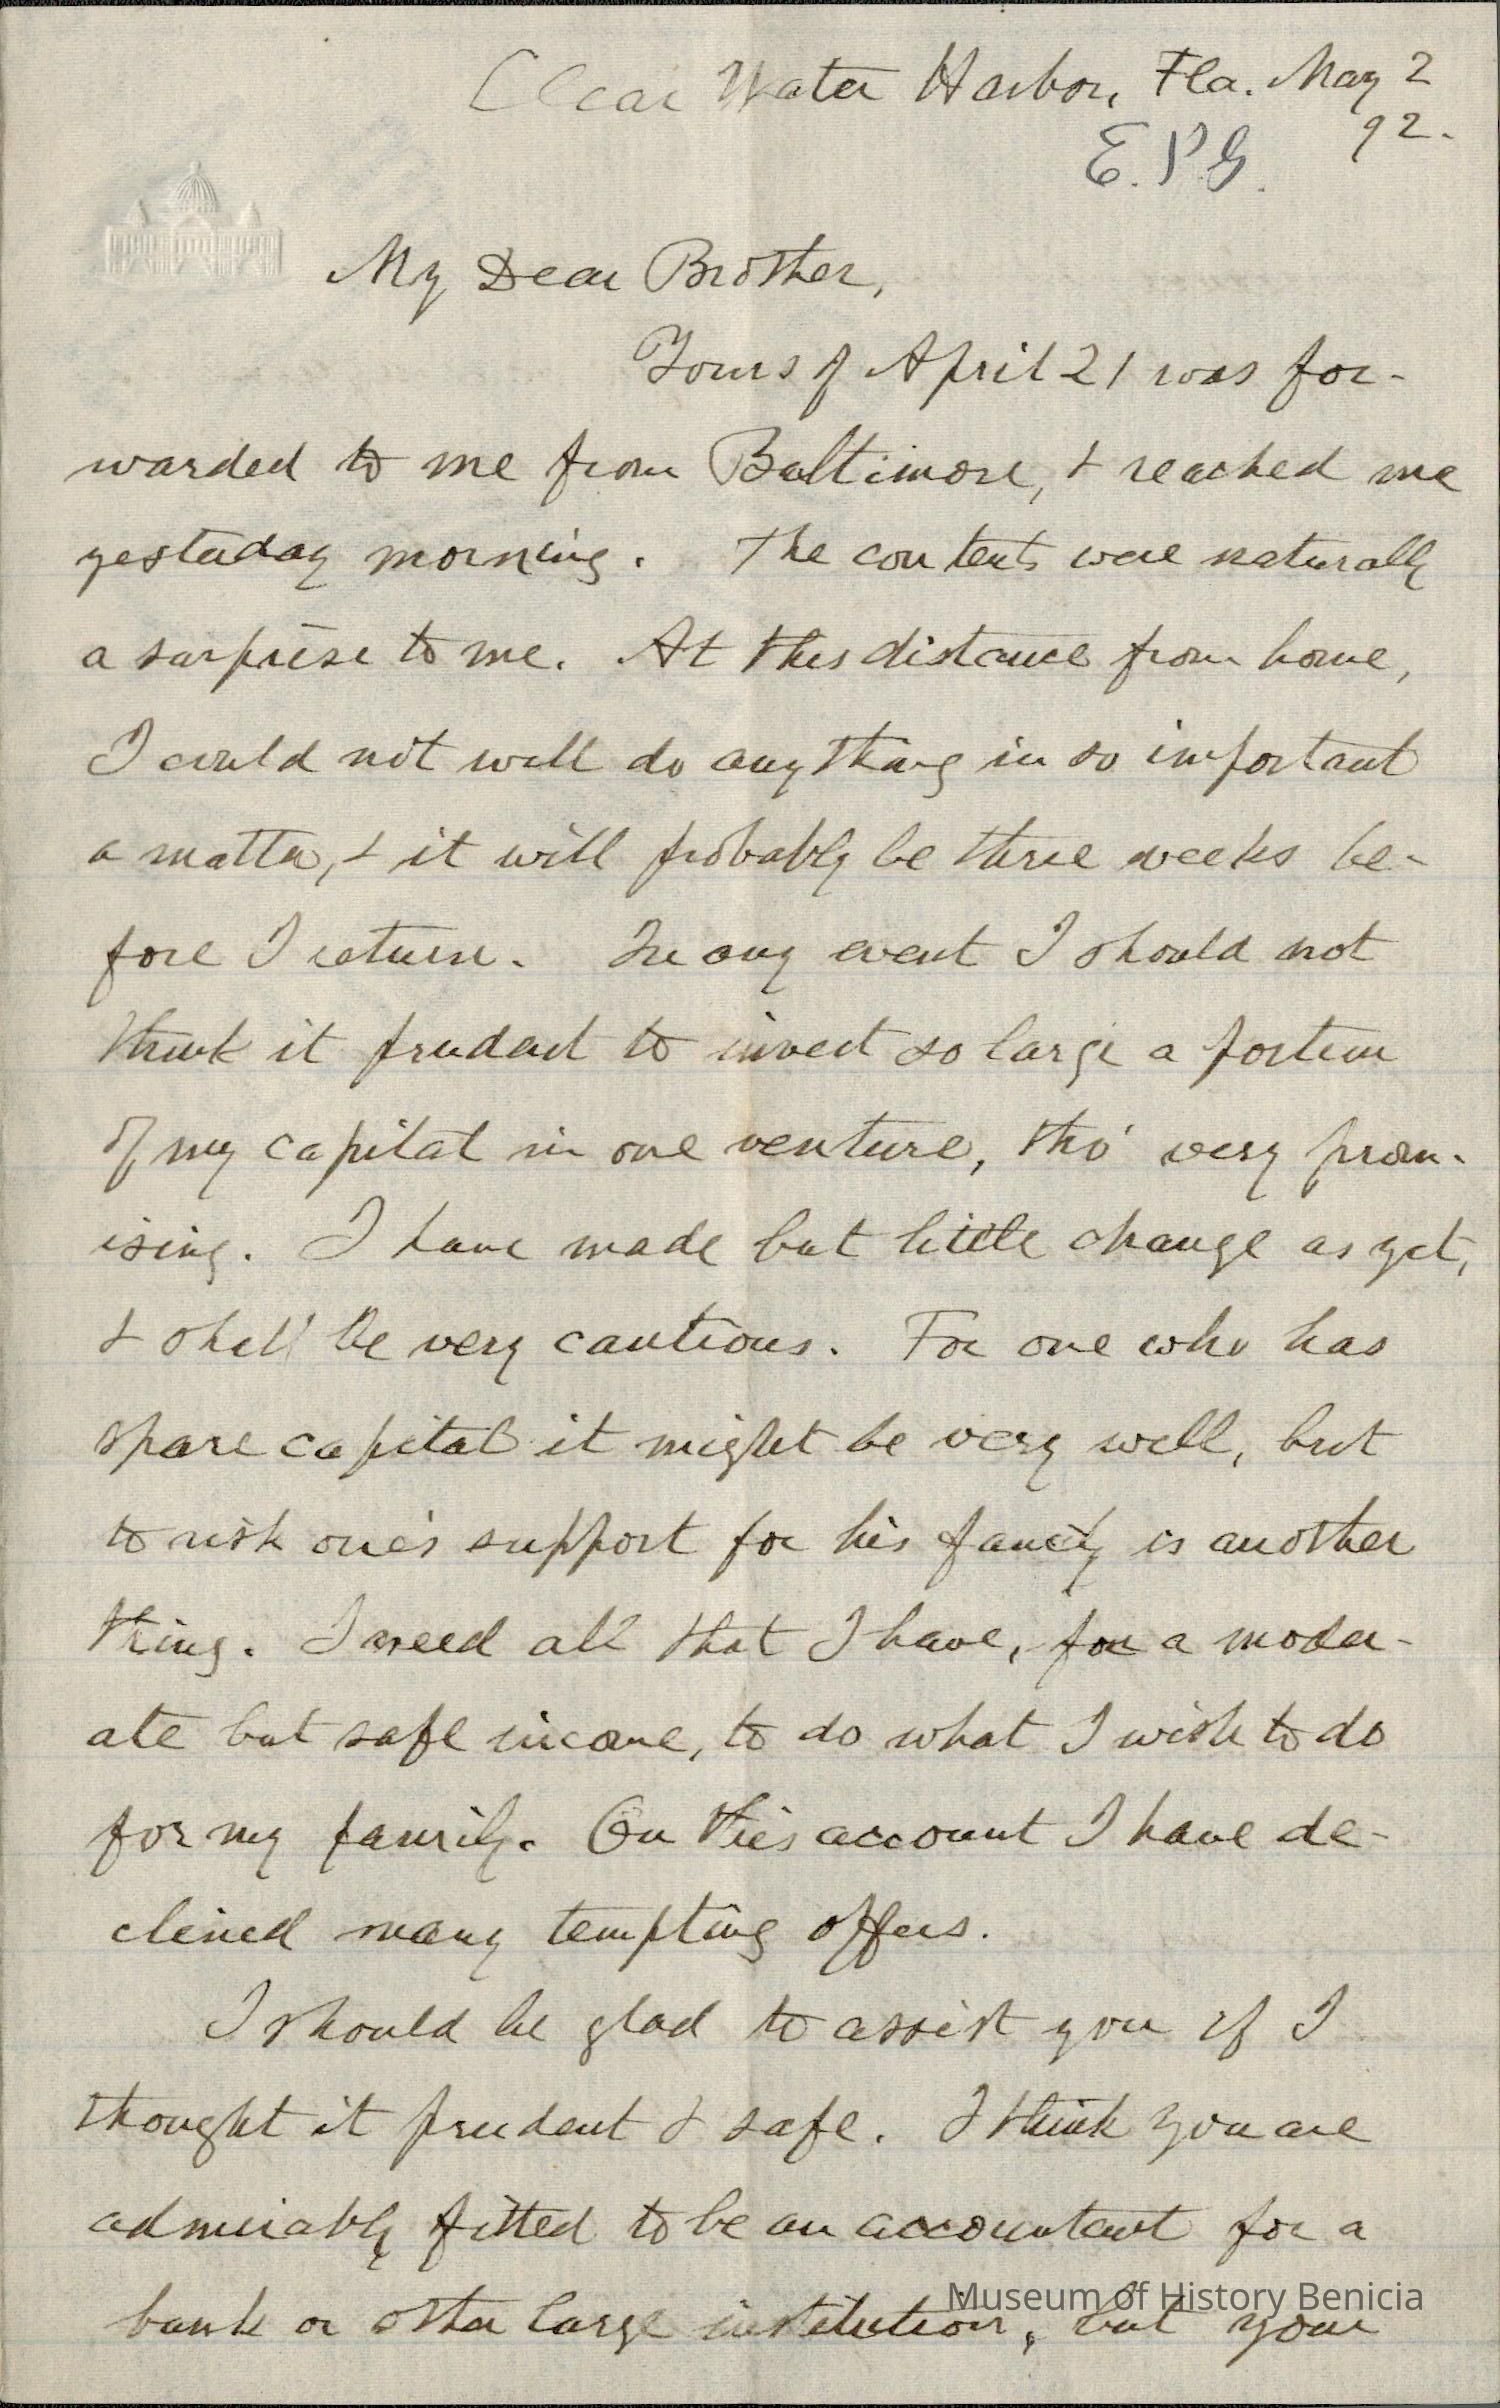 Clear Water Harbor, Fla. May 2
92.
E.P.G.
My Dear Brother,
Yours of April 21 was for-
warded to me from Baltimore, & reached me
yesterday morning. The contents were naturally
a surprise to me. At this distance from home,
I could not well do anything in so important
a matter, & it will probably be three weeks be-
fore I return. In any event I should not
think it prudent to invest so large a portion
of my capital in one venture, tho' very prom-
ising. I have made but little change as yet,
& shall be very cautious. For one who has
spare capital it might be very well, but
to risk one's support for his family is another
thing. I need all that I have, for a moder-
ate but safe income, to do what I wish to do
for my family. On this account I have de-
clined many tempting offers.
I should be glad to assist you if I
thought it prudent & safe. I think you are
admirably fitted to be an accountant for a
bank or other large institution, but your
Museum of History Benicia